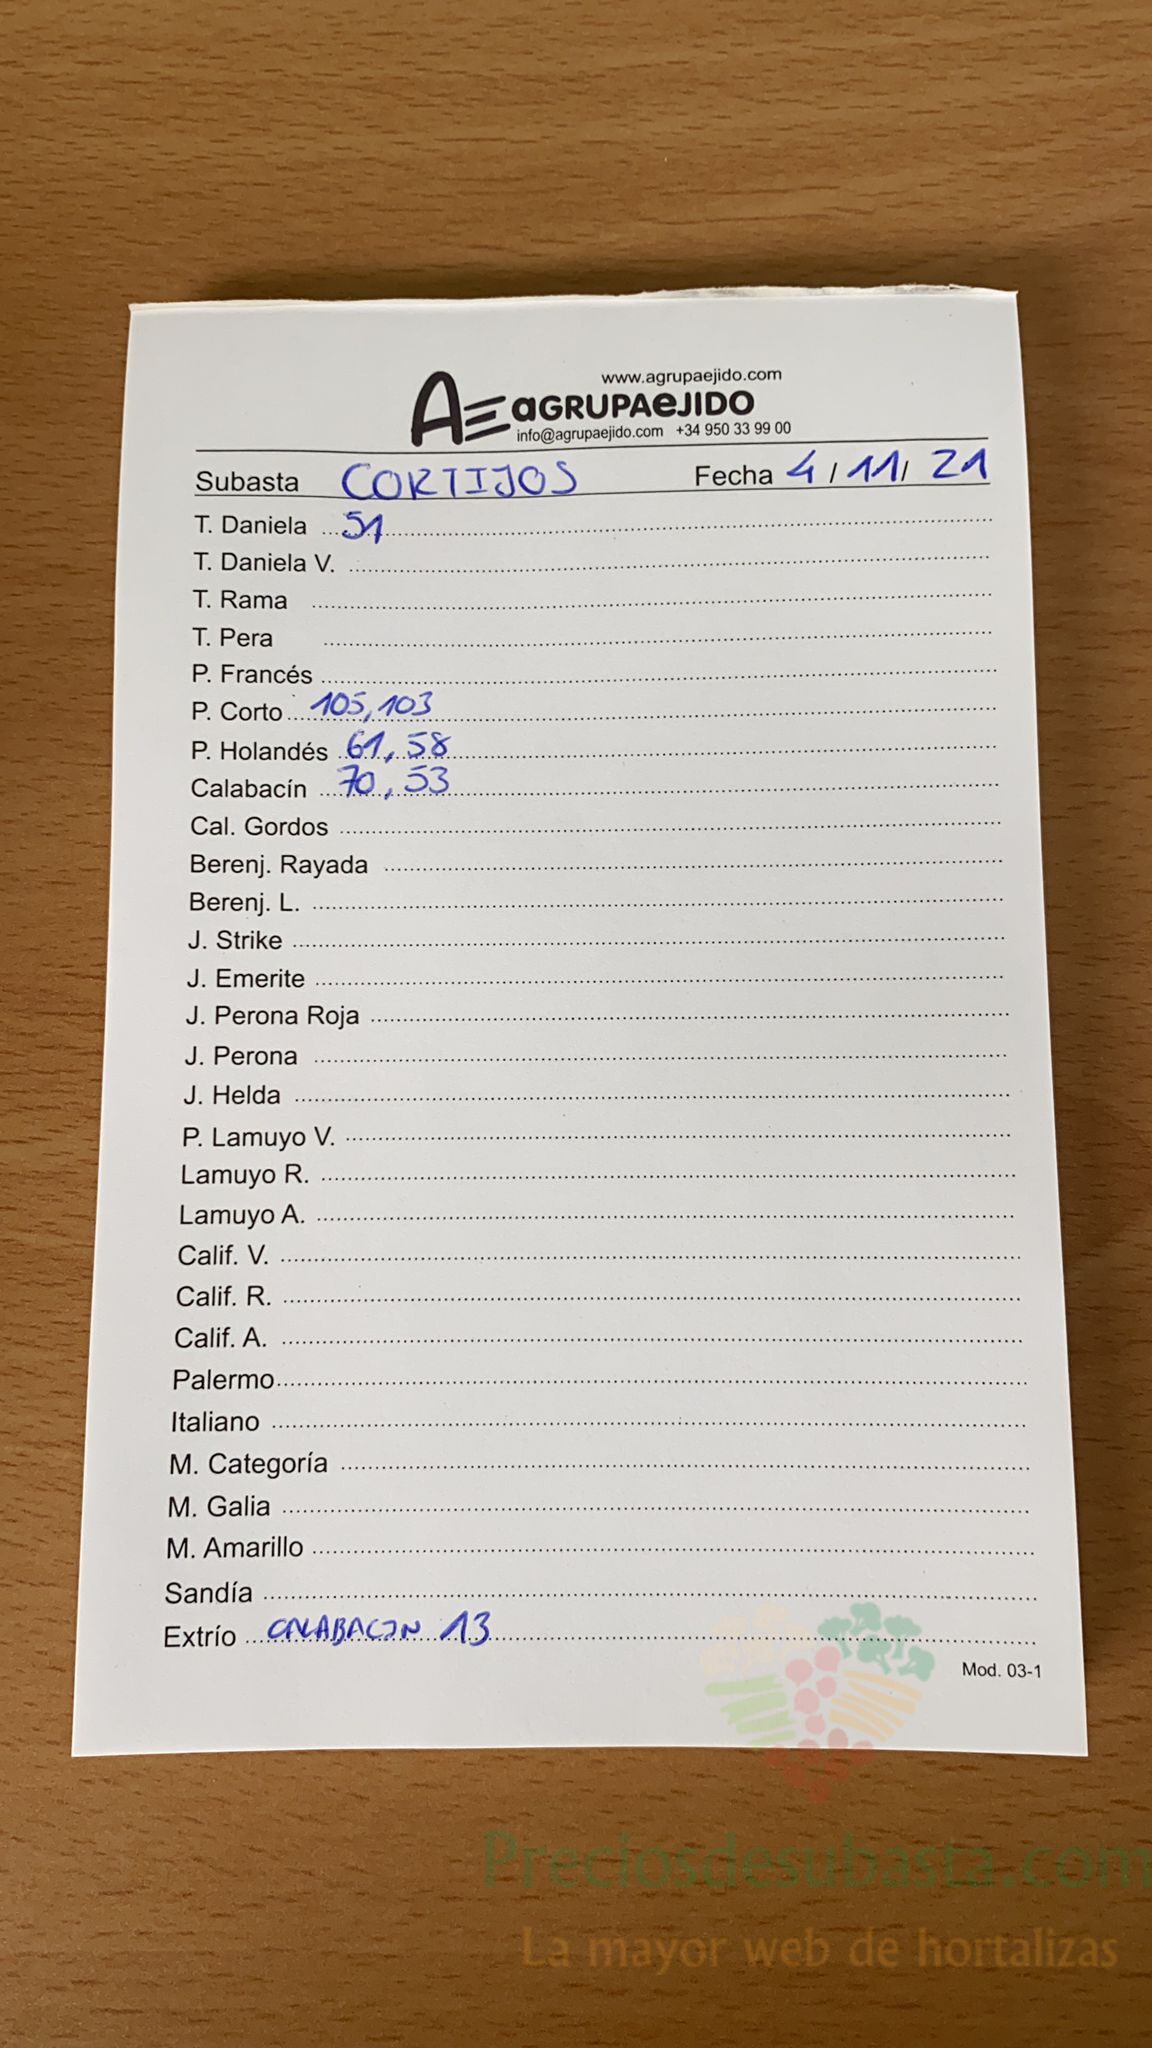 www.agrupaejido.com
AE aGRUPAeJIDO
info@agrupaejido.com +34 950 33 99 00
Subasta CORTIJOS Fecha 4 / 11 / 21
T. Daniela 51
T. Daniela V.
T. Rama
T. Pera
P. Francés
P. Corto 105, 103
P. Holandés 61, 58
Calabacín 70, 53
Cal. Gordos
Berenj. Rayada
Berenj. L.
J. Strike
J. Emerite
J. Perona Roja
J. Perona
J. Helda
P. Lamuyo V.
Lamuyo R.
Lamuyo A.
Calif. V.
Calif. R.
Calif. A.
Palermo
Italiano
M. Categoría
M. Galia
M. Amarillo
Sandía
Extrío CALABACIN 13
Mod. 03-1
Preciosdesubasta.com
La mayor web de hortalizas